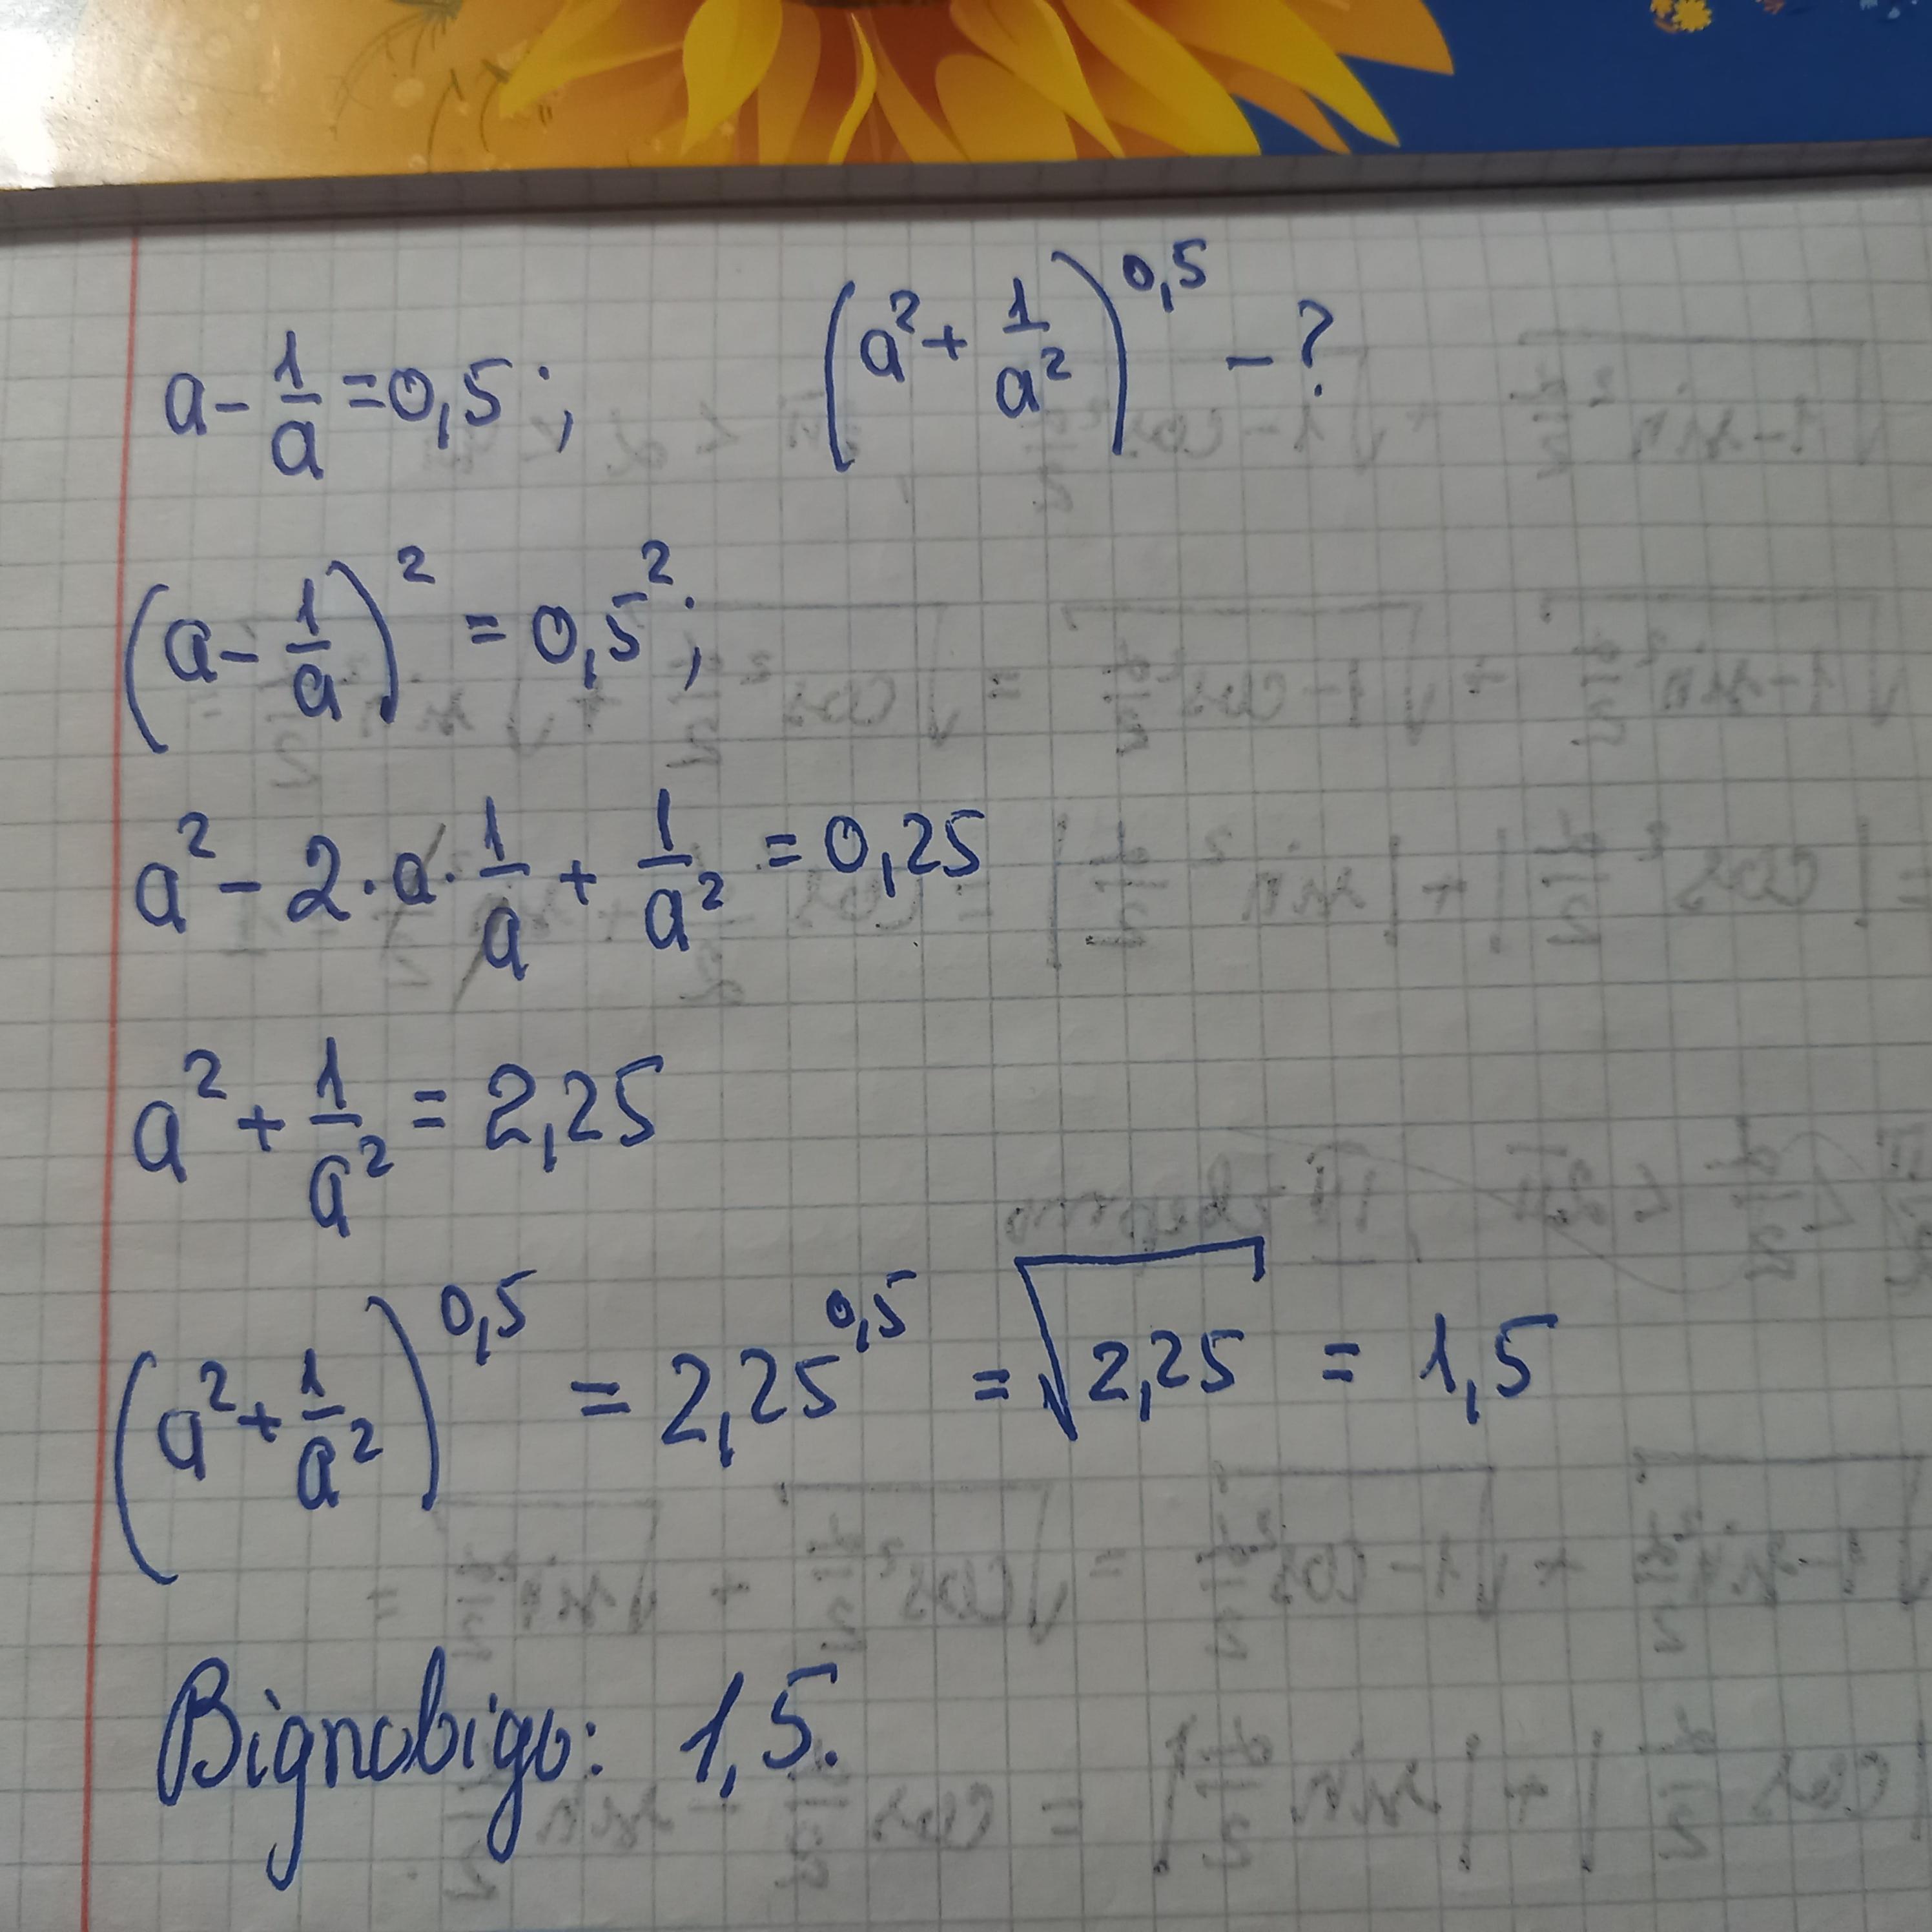 a - 1/a = 0,5; (a² + 1/a²)^0,5 - ?
(a - 1/a)² = 0,5²;
a² - 2·a·1/a + 1/a² = 0,25
a² + 1/a² = 2,25
(a² + 1/a²)^0,5 = 2,25^0,5 = √2,25 = 1,5
Відповідь: 1,5.